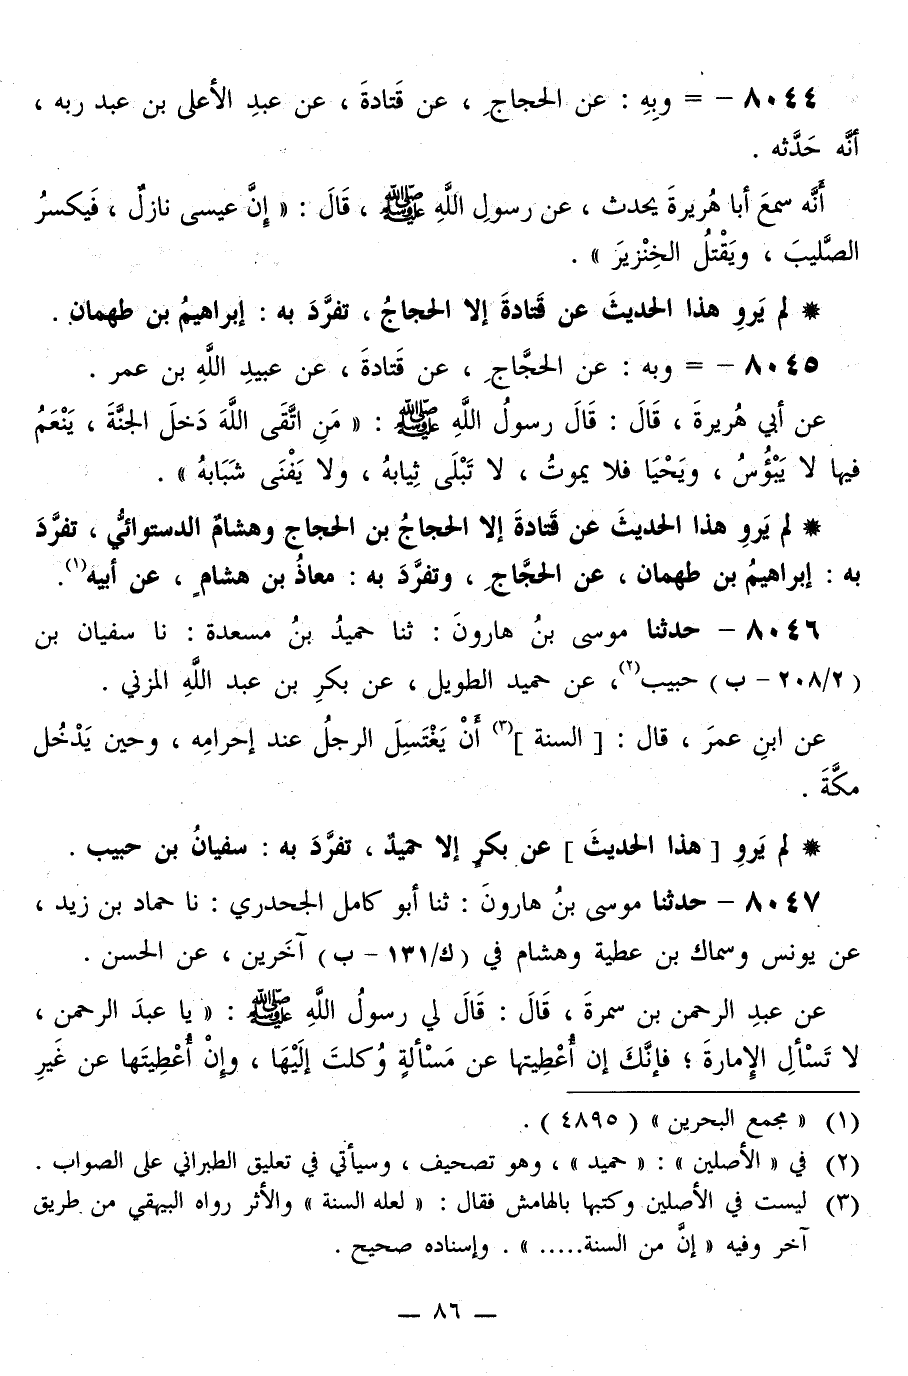 ٨٠٤٤ – = وبِهِ : عن الحجاجِ ، عن قَتادةَ ، عن عبدِ الأعلى بن عبد ربه ،
أنَّه حَدَّثه .
أَنَّه سمعَ أبا هُريرةَ يحدث ، عن رسولِ اللَّهِ ﷺ ، قَالَ : « إنَّ عيسى نازلٌ ، فَيكسرُ
الصَّليبَ ، ويَقْتلُ الخِنْزيرَ » .
* لم يَروِ هذا الحديثَ عن قَتادةَ إلا الحجاجُ ، تفرَّدَ به : إبراهيمُ بن طهمان .
٨٠٤٥ – = وبه : عن الحجَّاجِ ، عن قَتادةَ ، عن عبيدِ اللَّهِ بن عمر .
عن أبي هُريرةَ ، قَالَ : قَالَ رسولُ اللَّهِ ﷺ : « مَنِ اتَّقَى اللَّهَ دَخلَ الجنَّةَ ، يَنْعَمُ
فيها لا يَبْؤُسُ ، ويَحْيَا فلا يموتُ ، لا تَبْلَى ثِيابهُ ، ولا يَفْنَى شَبَابهُ » .
* لم يَروِ هذا الحديثَ عن قَتادةَ إلا الحجاجُ بن الحجاج وهشامٌ الدستوائيُّ ، تفرَّدَ
به : إبراهيمُ بن طهمان ، عن الحجَّاجِ ، وتفرَّدَ به : معاذُ بن هشامٍ ، عن أبيه(١).
٨٠٤٦ – حدثنا موسى بنُ هارونَ : ثنا حميدُ بنُ مسعدة : نا سفيان بن
( ٢٠٨/٢ – ب ) حبيب(٢)، عن حميد الطويل ، عن بكرِ بن عبد اللَّهِ المزني .
عن ابنِ عمرَ ، قال : [ السنة ](٣) أَنْ يَغْتَسِلَ الرجلُ عند إحرامِه ، وحين يَدْخُل
مكَّةَ .
* لم يَروِ [ هذا الحديثَ ] عن بكرٍ إلا حميدٌ ، تفرَّدَ به : سفيانُ بن حبيب .
٨٠٤٧ – حدثنا موسى بنُ هارونَ : ثنا أبو كامل الجحدري : نا حماد بن زيد ،
عن يونس وسماك بن عطية وهشام في ( ك/١٣١ – ب ) آخَرين ، عن الحسن .
عن عبدِ الرحمن بن سمرةَ ، قَالَ : قَالَ لي رسولُ اللَّهِ ﷺ : « يا عبدَ الرحمن ،
لا تَسْألِ الإمارةَ ؛ فإنَّكَ إن أُعْطِيتها عن مَسْألةٍ وُكلتَ إلَيْهَا ، وإنْ أُعْطِيتَها عن غَيرِ
(١) « مجمع البحرين » ( ٤٨٩٥ ) .
(٢) في « الأصلين » : « حميد » ، وهو تصحيف ، وسيأتي في تعليق الطبراني على الصواب .
(٣) ليست في الأصلين وكتبها بالهامش فقال : « لعله السنة » والأثر رواه البيهقي من طريق
آخر وفيه « إنَّ من السنة..... » . وإسناده صحيح .
— ٨٦ —